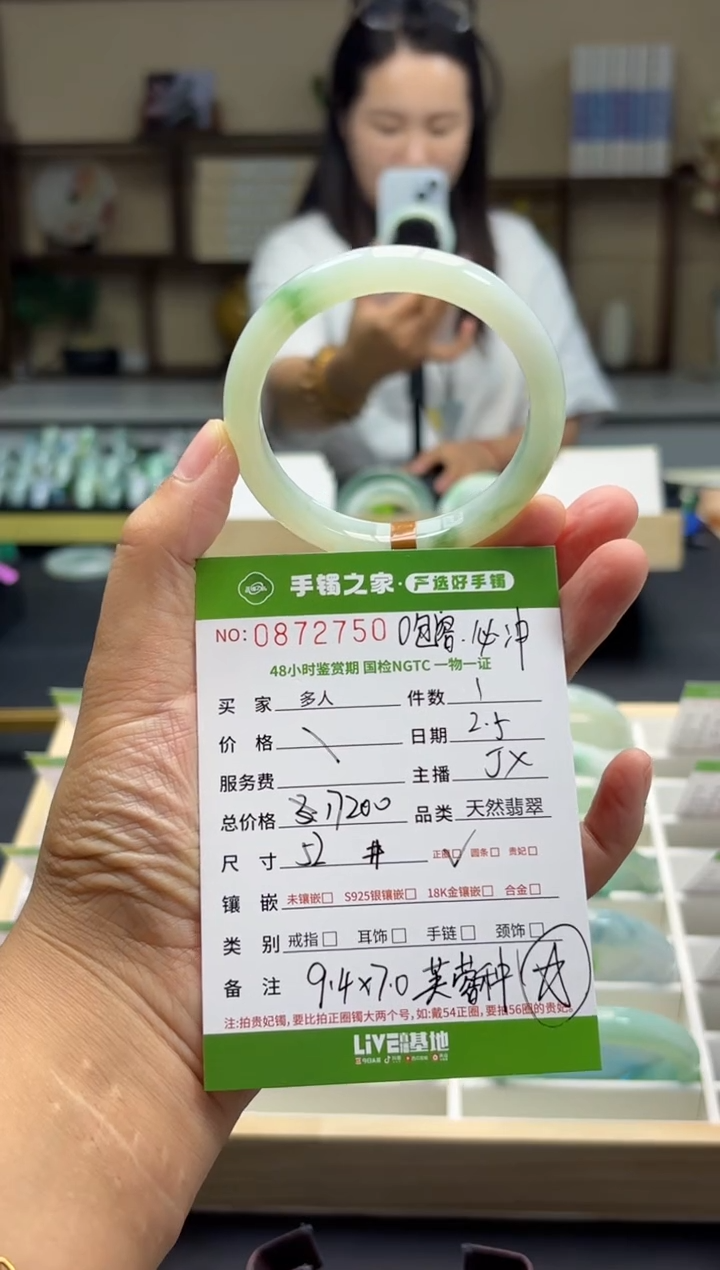 手镯之家·严选好手镯
NO:0872750 必冲
48小时鉴赏期 国检NGTC 一物一证
买家 多人 件数 1
价格 \ 日期 2.5
服务费 主播 JX
总价格 17200 品类 天然翡翠
尺寸 52 # 正圈☑ 圆条□ 贵妃□
镶嵌 未镶嵌□ S925银镶嵌□ 18K金镶嵌□ 合金□
类别 戒指□ 耳饰□ 手链□ 颈饰□
备注 9.4×7.0 芙蓉种
注:拍贵妃镯,要比拍正圈镯大两个号,如:戴54正圈,要拍56圈的贵妃。
LiVE 基地